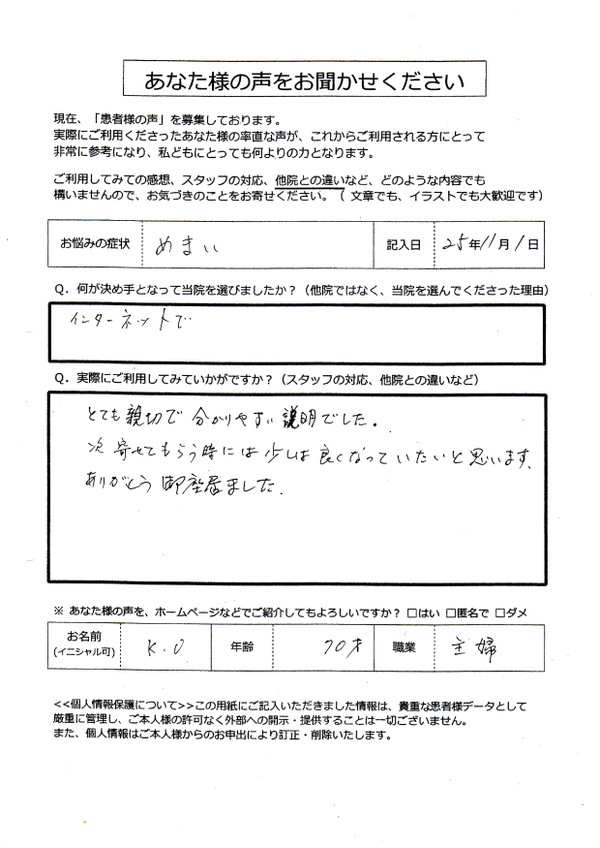 あなた様の声をお聞かせください
現在、「患者様の声」を募集しております。
実際にご利用くださったあなた様の率直な声が、これからご利用される方にとって
非常に参考になり、私どもにとっても何よりの力となります。
ご利用してみての感想、スタッフの対応、他院との違いなど、どのような内容でも
構いませんので、お気づきのことをお寄せください。（ 文章でも、イラストでも大歓迎です）
お悩みの症状 めまい 記入日 25年11月1日
Q．何が決め手となって当院を選びましたか？（他院ではなく、当院を選んでくださった理由）
インターネットで
Q．実際にご利用してみていかがですか？（スタッフの対応、他院との違いなど）
とても親切で分かりやすい説明でした。
次寄せてもらう時には少しは良くなっていたいと思います、
ありがとう御座居ました.
※ あなた様の声を、ホームページなどでご紹介してもよろしいですか？ □はい □匿名で □ダメ
お名前 (イニシャル可) K.O 年齢 70才 職業 主婦
<<個人情報保護について>>この用紙にご記入いただきました情報は、貴重な患者様データとして
厳重に管理し、ご本人様の許可なく外部への開示・提供することは一切ございません。
また、個人情報はご本人様からのお申出により訂正・削除いたします。